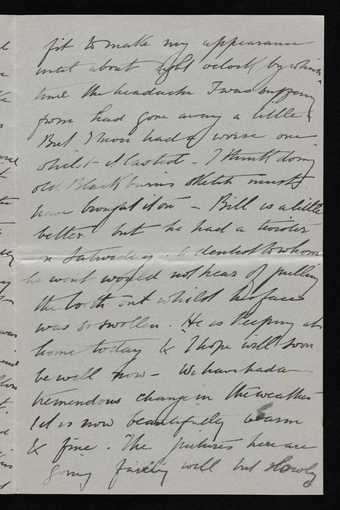 fit to make my appearance
until about eight o'clock by which
time the headache I was suffering
from had gone away a little
But I never had a worse one
whilst it lasted. I think doing
old Blackburn's sketch must
have brought it on – Bill is a little
better but he had a twister
on Saturday. dentist to whom
he went would not hear of pulling
the tooth out whilst his face
was so swollen. He is keeping at
home today & I hope will soon
be well now – We have had a
tremendous change in the weather
It is now beautifully warm
& fine. The pictures here are
going fairly well but slowly